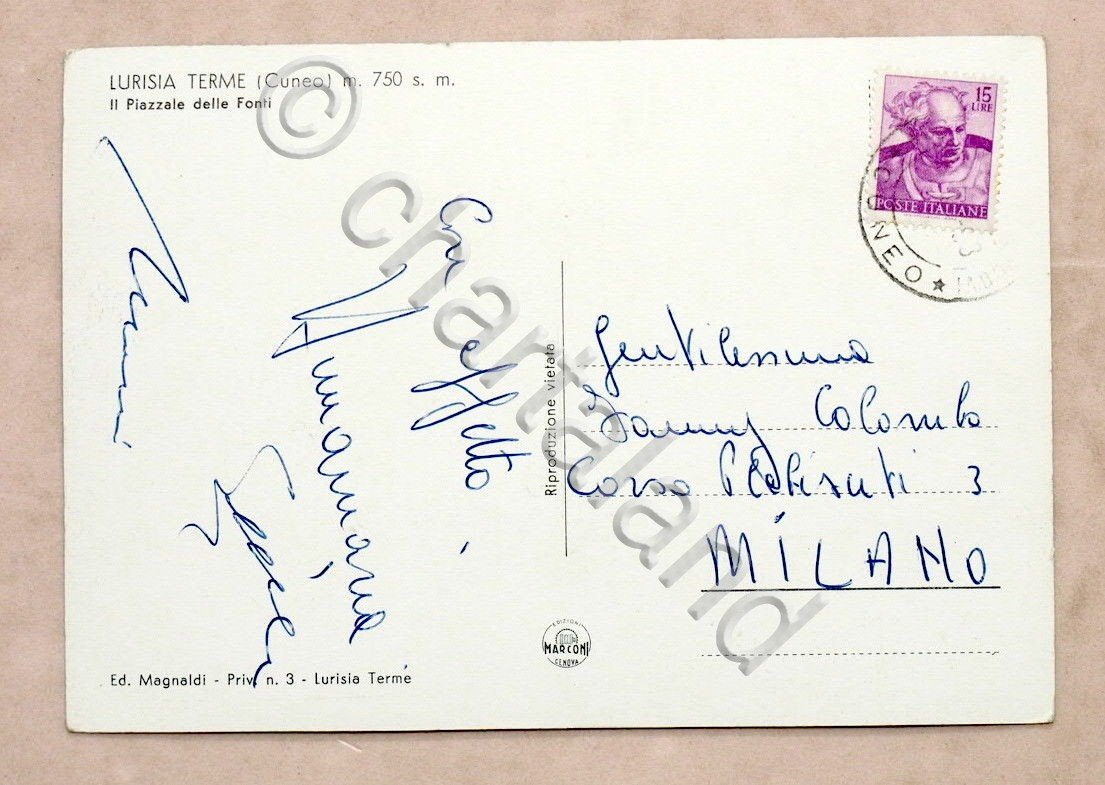 LURISIA TERME (Cuneo) m. 750 s. m.
Il Piazzale delle Fonti
15
LIRE
POSTE ITALIANE
CUNEO
Con affetto
Annamaria
Gentilissima
Danny Colombo
Corso Plebisciti 3
MILANO
Riproduzione vietata
EDIZIONI
MARCONI
GENOVA
Ed. Magnaldi - Priv. n. 3 - Lurisia Terme
© chartaland